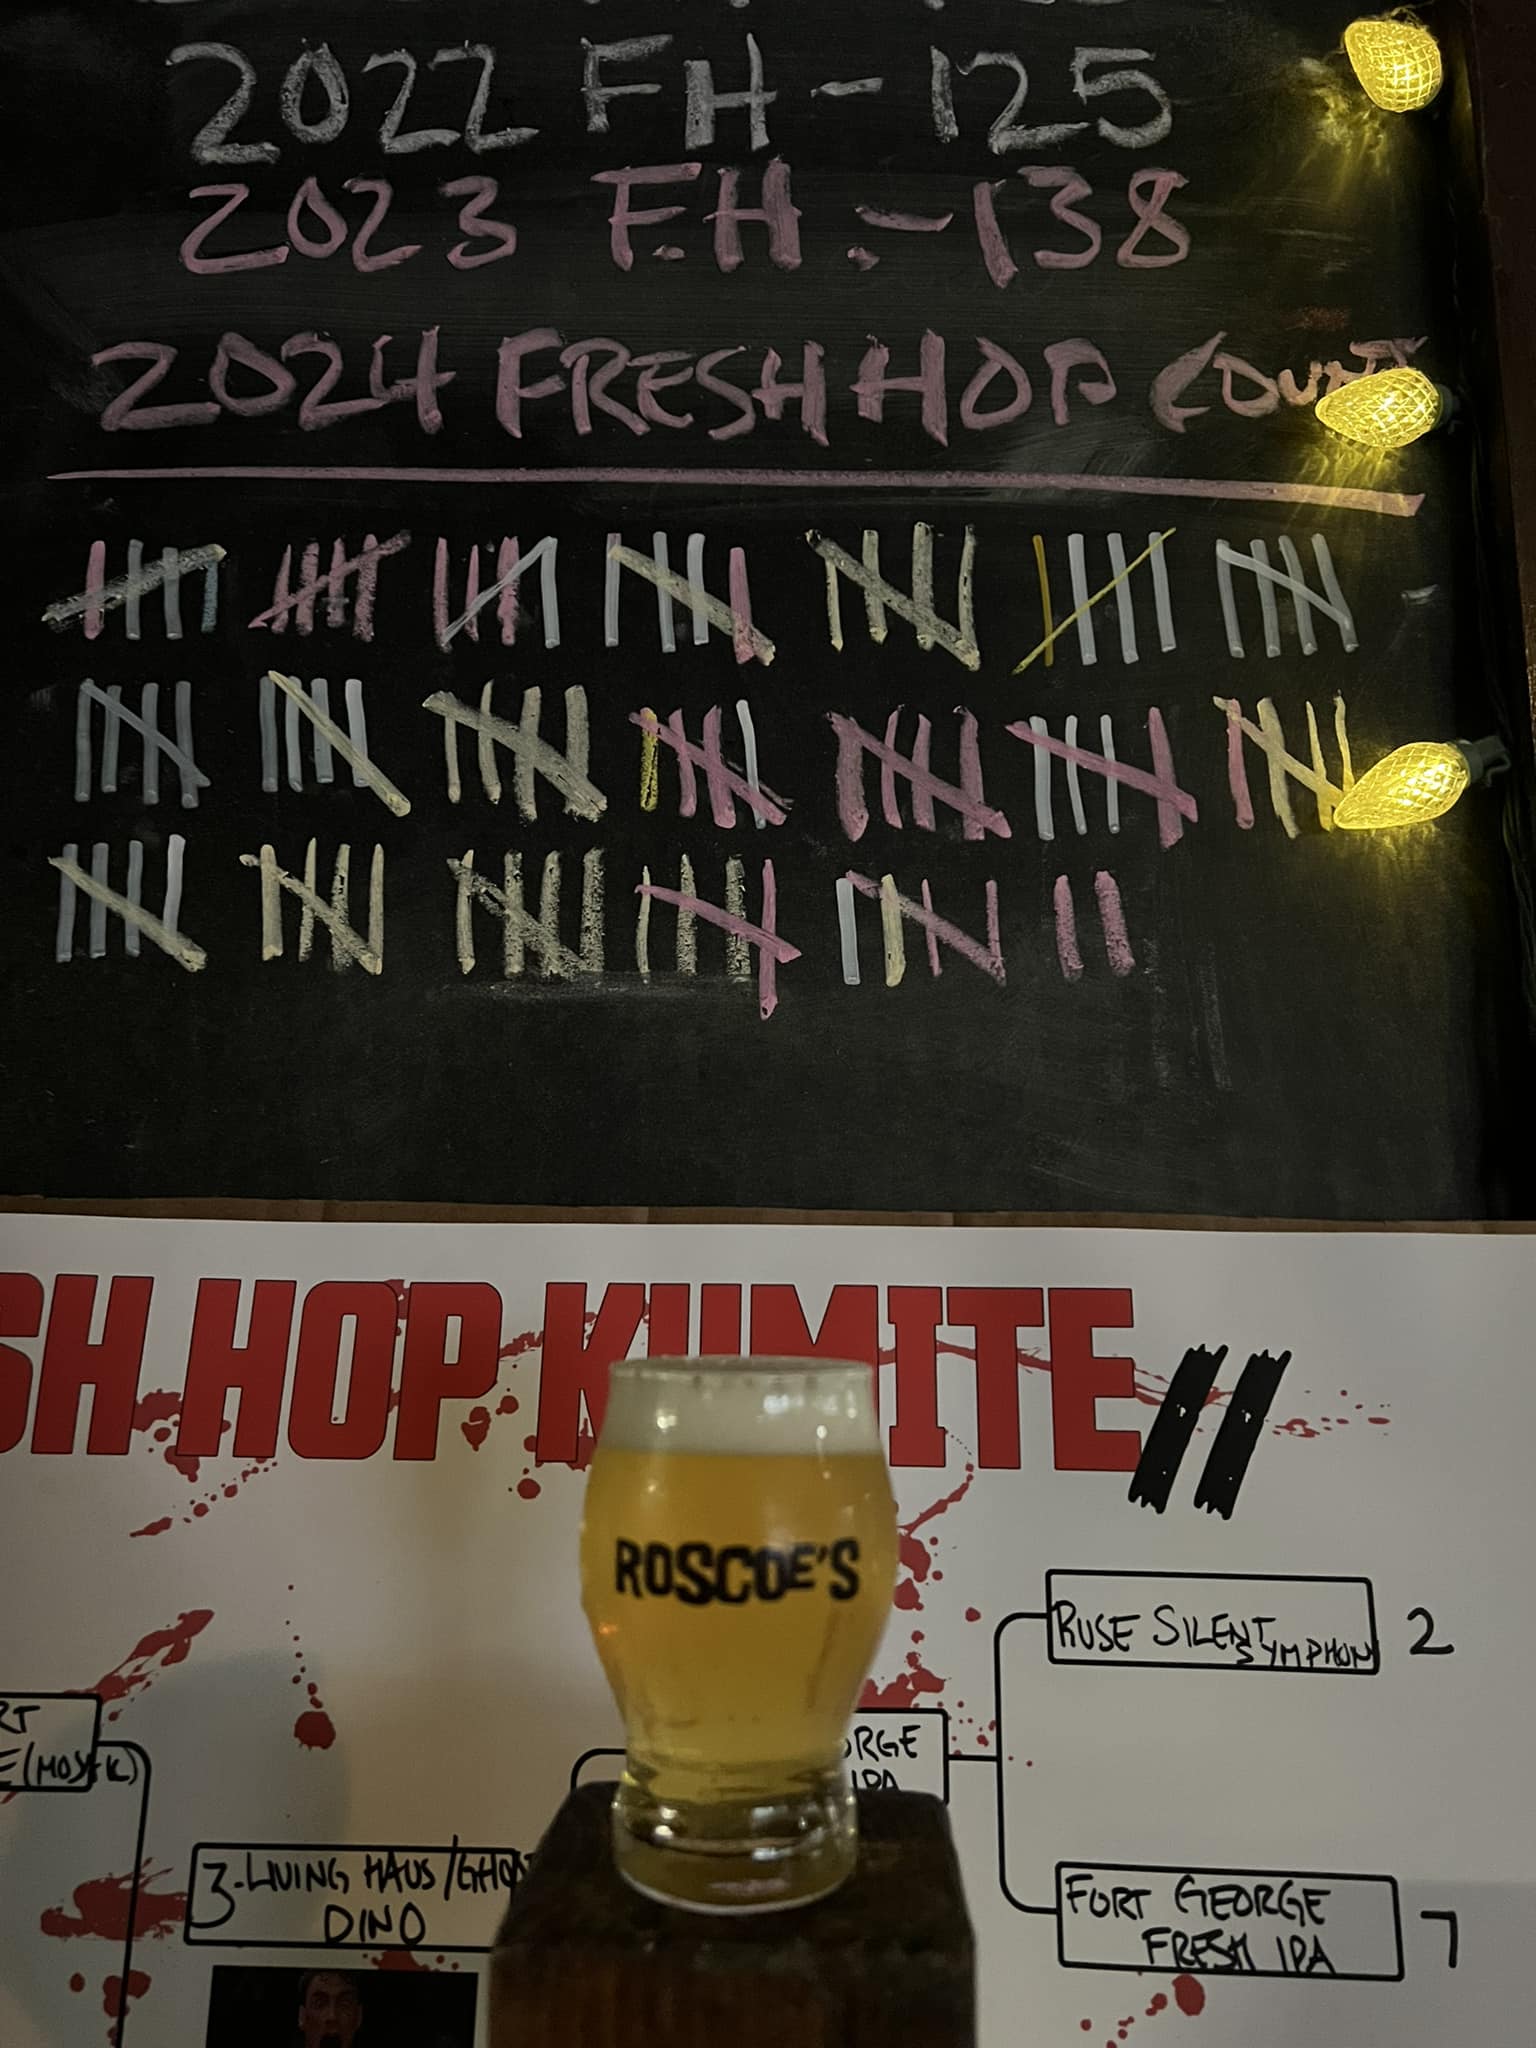 2022 FH - 125
2023 F.H. - 138
2024 FRESH HOP COUNT
SH HOP KUMITE II
ROSCOE'S
RUSE SILENT SYMPHONY 2
(MOSAIC)
ORGE
IPA
3-LIVING HAUS/GHO
DINO
FORT GEORGE 7
FRESH IPA